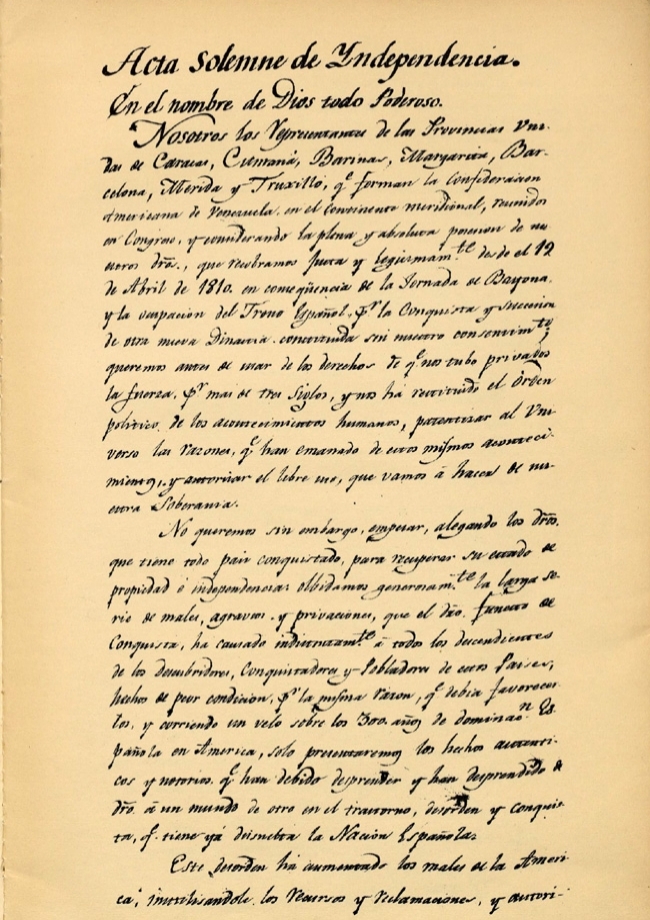 Acta Solemne de Yndependencia.
En el nombre de Dios todo Poderoso.
Nosotros los Representantes de las Provincias Uni-
das de Caracas, Cumaná, Barinas, Margarita, Bar-
celona, Merida y Truxillo, qᵉ forman la Confederacion
Americana de Venezuela en el continente meridional, reunidos
en Congreso, y considerando la plena y absoluta posecion de nu-
estros dr̃os., que recobramos justa y legitimamᵗᵉ desde el 19
de Abril de 1810. en conseqüencia de la Jornada de Bayona,
y la ocupacion del Trono Español, pʳ la Conquista y Succecion
de otra nueva Dinastia constituida sin nuestro consentimᵗᵒ,
queremos antes de usar de los derechos de qᵉ nos tubo privados
la fuerza, pʳ mas de tres Siglos, y nos ha restituido el Orden
politico de los acontecimientos humanos, patentizar al Uni-
verso las razones, qᵉ han emanado de estos mismos aconteci-
mientos, y autorizar el libre uso, que vamos á hacer de nu-
estra Soberania.
No queremos sin embargo, empezar, alegando los dr̃os.
que tiene todo pais conquistado, para recuperar su estado de
propiedad é independencia: olbidamos generosamᵗᵉ la larga se-
rie de males, agravios y privaciones, que el dr̃o. funesto de
Conquista, ha causado indistintamᵗᵉ á todos los descendientes
de los descubridores, Conquistadores y Pobladores de estos Paises,
hechos de peor condicion, pʳ la misma razon, qᵉ debia favorecer
los, y corriendo un velo sobre los 300. años de dominaoⁿ Es-
pañola en America, solo presentaremos los hechos autenti-
cos y notorios, qᵉ han debido desprender y han desprendido de
dr̃o. á un mundo de otro en el trastorno, desorden y conquis-
ta, qᵉ tiene yá disuelta la Nación Española.
Este desorden há aumentado los males de la Ameri-
ca, inutilisandole los recursos y reclamaciones, y autori-